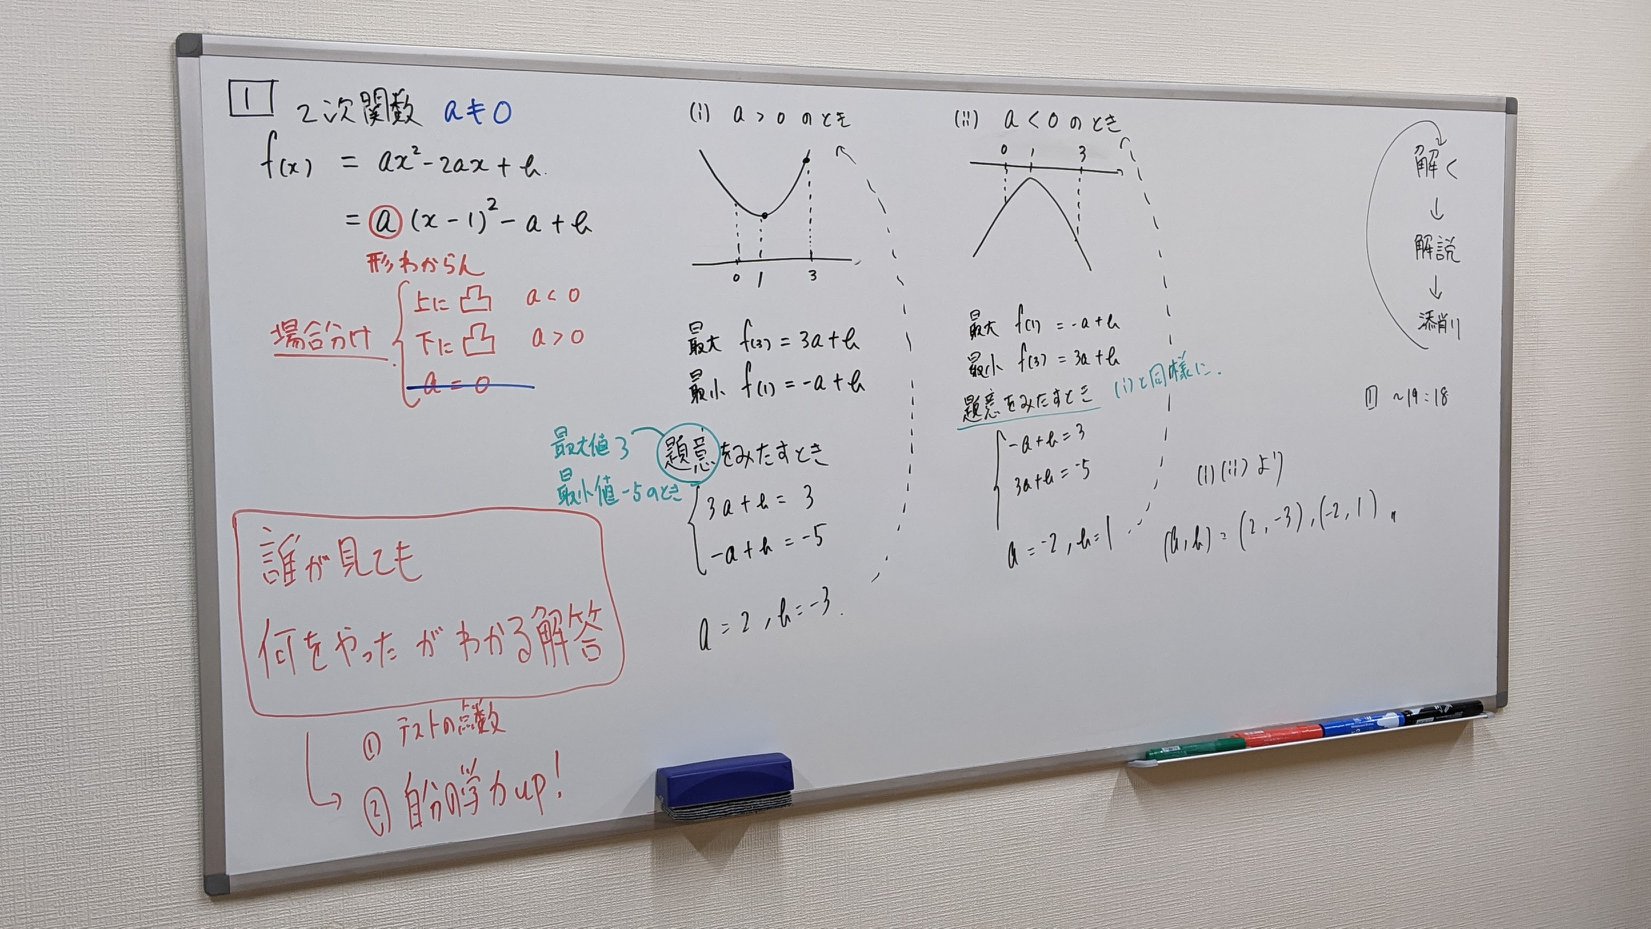 1 2次関数 a≠0
f(x) = ax²-2ax+b.
= a(x-1)²-a+b
形わからん
場合分け
上に凸 a<0
下に凸 a>0
a=0
誰が見ても
何をやったがわかる解答
① テストの点数
② 自分の学力up!
(i) a>0 のとき
0 1 3
最大 f(3) = 3a+b
最小 f(1) = -a+b
最大値3
最小値-5のとき
題意をみたすとき
3a+b = 3
-a+b = -5
a=2, b=-3.
(ii) a<0 のとき
0 1 3
最大 f(1) = -a+b
最小 f(3) = 3a+b
題意をみたすとき (i)と同様に.
-a+b=3
3a+b=-5
a=-2, b=1
(i)(ii)より
(a,b) = (2,-3),(-2,1)
解く
↓
解説
↓
添削
① ~19:18